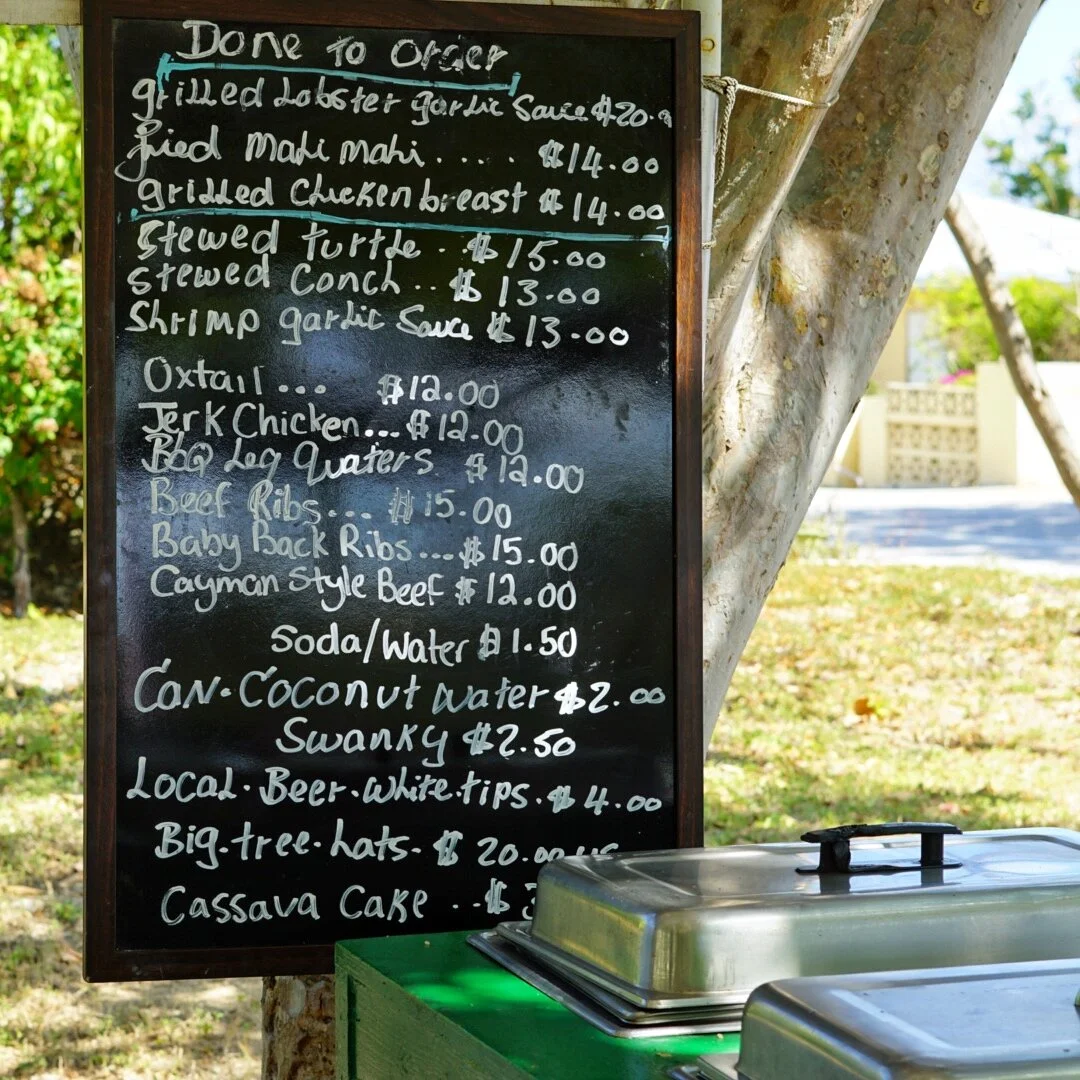 Done to Order
grilled Lobster garlic Sauce $20.
fried mahi mahi.... $14.00
grilled Chicken breast $14.00
Stewed turtle .. $15.00
Stewed Conch .. $13.00
Shrimp garlic Sauce $13.00
Oxtail... $12.00
Jerk Chicken... $12.00
BBQ Leg Quaters $12.00
Beef Ribs... $15.00
Baby Back Ribs... $15.00
Cayman Style Beef $12.00
Soda/Water $1.50
Can.Coconut Water $2.00
Swanky $2.50
Local.Beer.white.tips.$4.00
Big.tree.hats. $20.00
Cassava Cake ..$